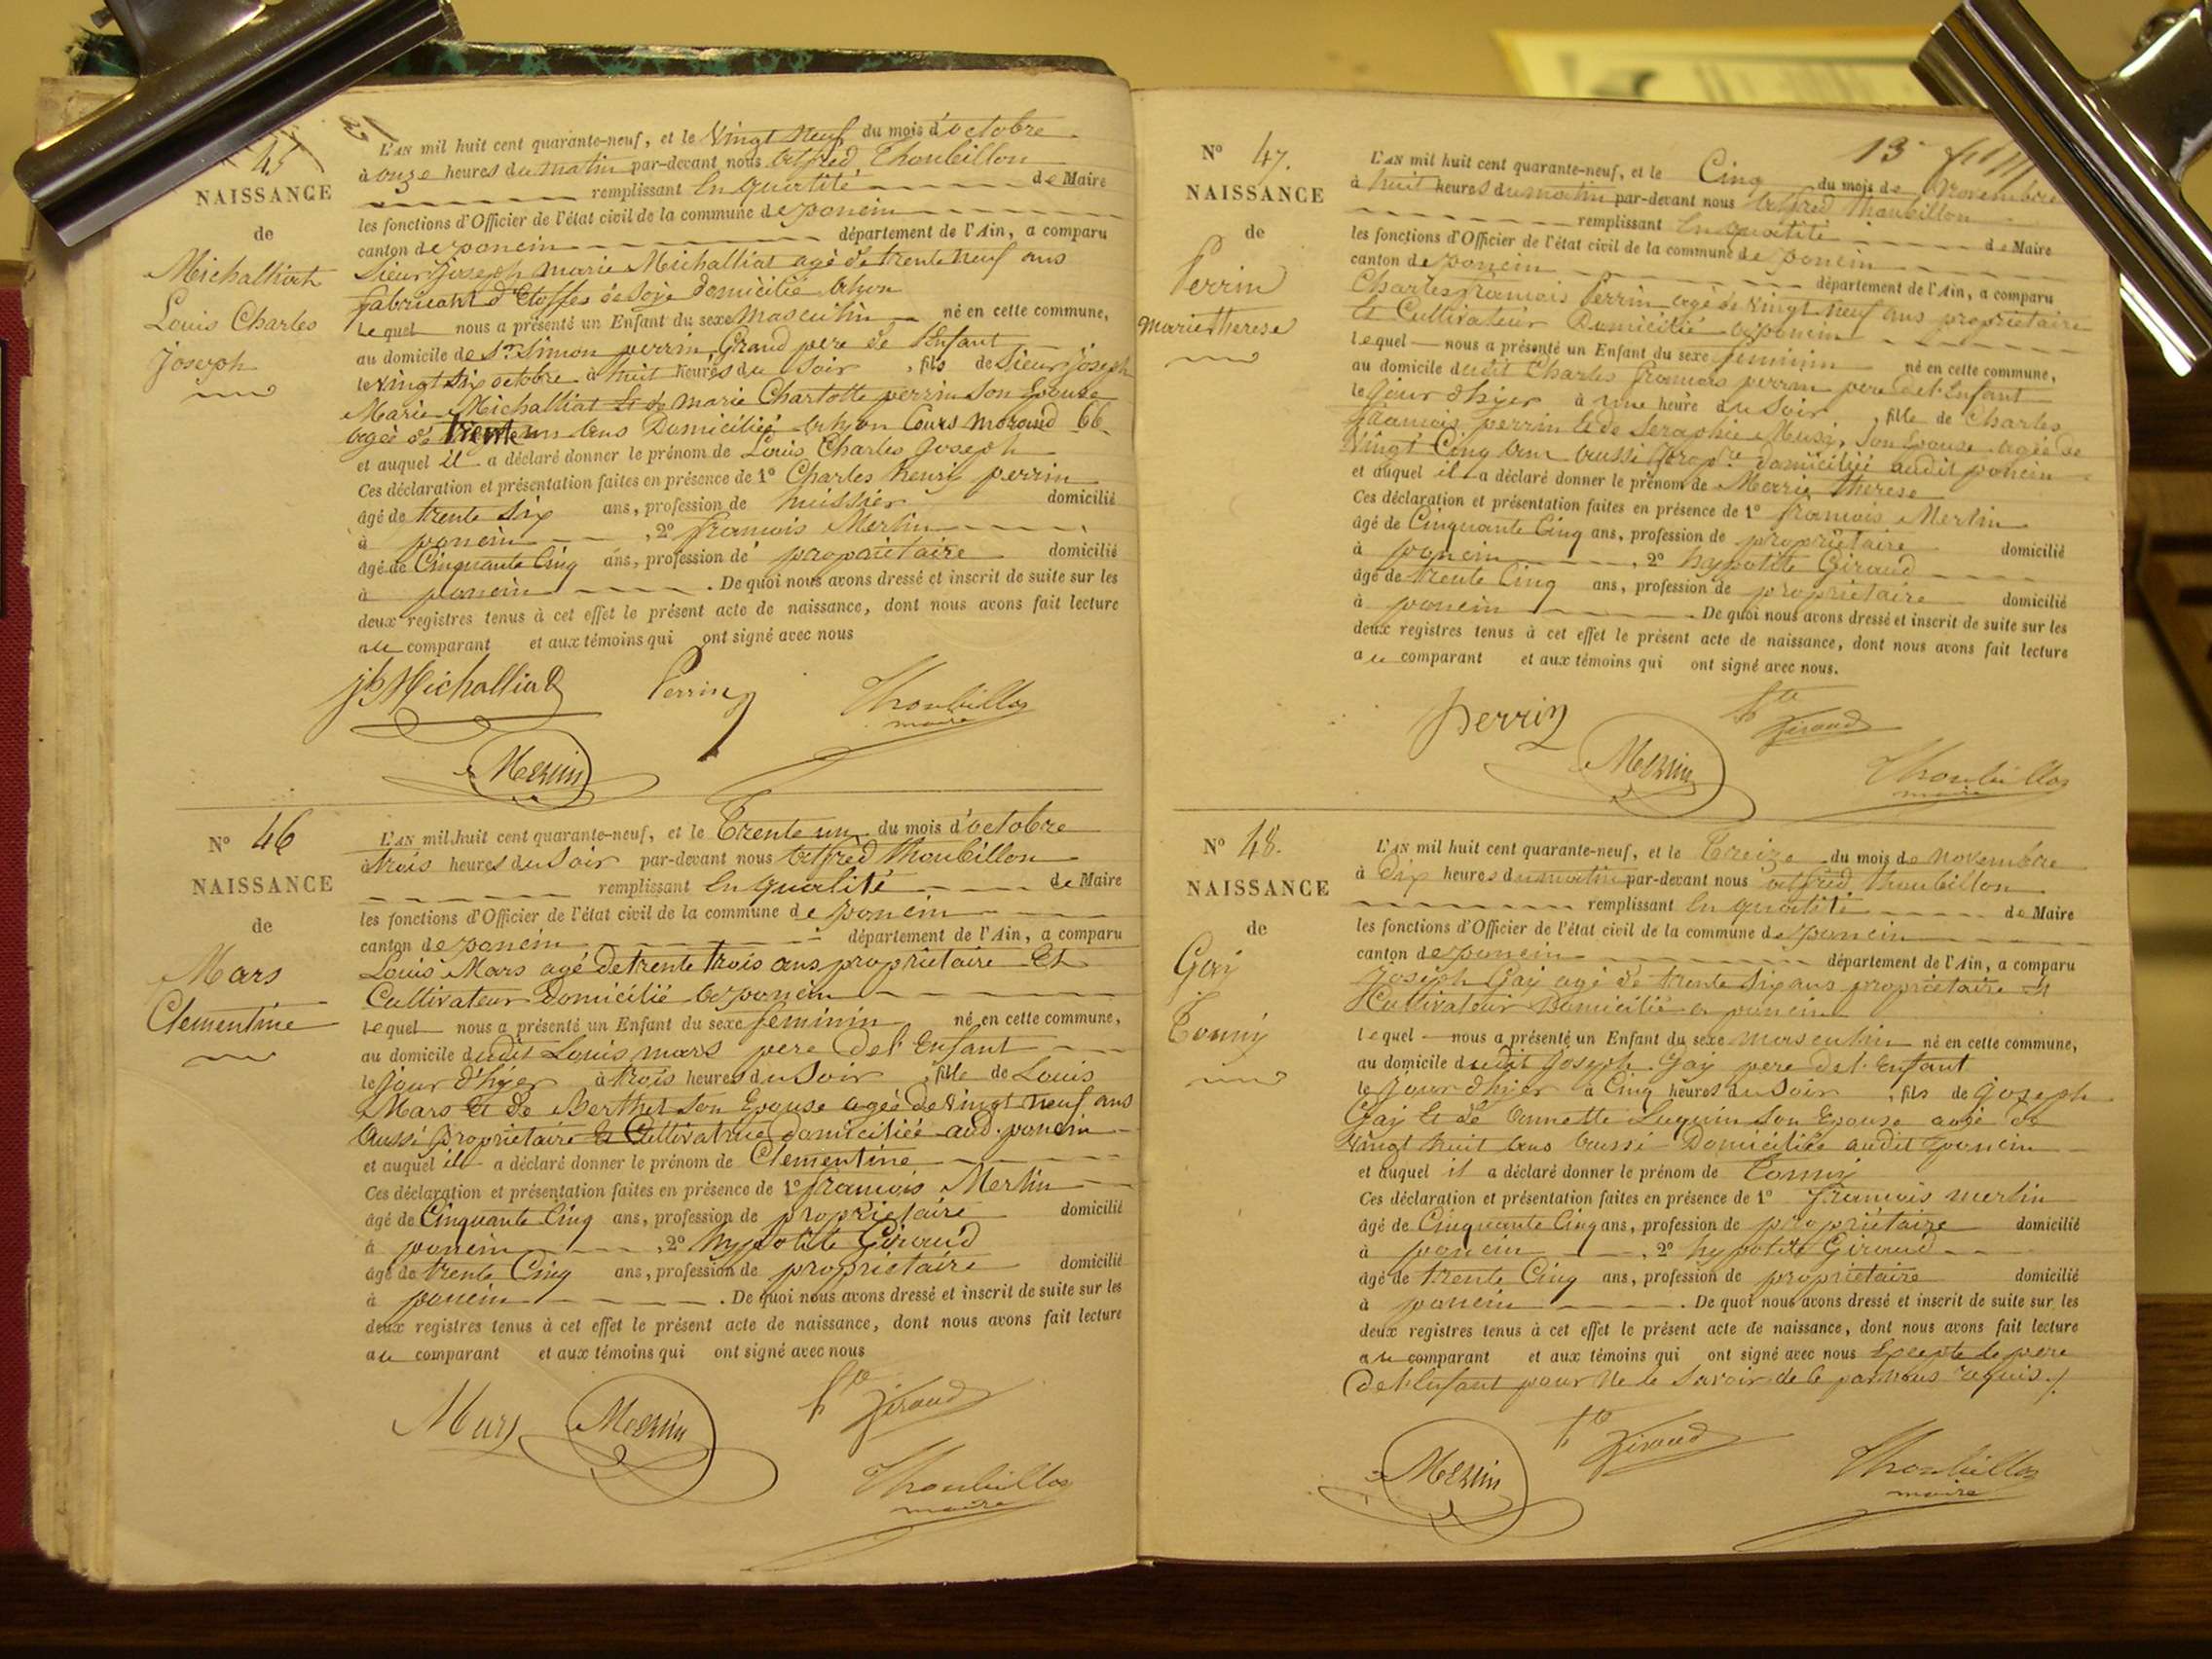 45
NAISSANCE
de
Michalliat
Louis Charles
Joseph
L'AN mil huit cent quarante-neuf, et le Vingt Neuf du mois d'octobre
à onze heures du matin par-devant nous alfred Thoubillon
remplissant En qualité de Maire
les fonctions d'Officier de l'état civil de la commune de poncin
canton de poncin département de l'Ain, a comparu
Sieur Joseph marie Michalliat agé de trente neuf ans
fabricant d'Etoffes de Soie domicilié a lyon
lequel nous a présenté un Enfant du sexe masculin né en cette commune,
au domicile de Sr Simon perrin Grand pere de l'Enfant
le Vingt Six octobre à huit heures du Soir , fils de Sieur Joseph
Marie Michalliat Et de marie Charlotte perrin Son Epouse
agée de trente un ans Domiciliée a lyon Cours morand 66
et auquel il a déclaré donner le prénom de Louis Charles Joseph
Ces déclaration et présentation faites en présence de 1° Charles henri perrin
âgé de trente Six ans, profession de huissier domicilié
à poncin , 2° francois Merlin
âgé de Cinquante Cinq ans, profession de propriétaire domicilié
à poncin . De quoi nous avons dressé et inscrit de suite sur les
deux registres tenus à cet effet le présent acte de naissance, dont nous avons fait lecture
au comparant et aux témoins qui ont signé avec nous
jh Michalliat Perrin Thoubillon
maire
Merlin
N° 46
NAISSANCE
de
Mars
Clementine
L'AN mil huit cent quarante-neuf, et le Trente un du mois d'octobre
à trois heures du Soir par-devant nous alfred thoubillon
remplissant En qualité de Maire
les fonctions d'Officier de l'état civil de la commune de poncin
canton de poncin département de l'Ain, a comparu
Louis Mars agé de trente trois ans propriétaire Et
Cultivateur Domicilié a poncin
lequel nous a présenté un Enfant du sexe feminin né en cette commune,
au domicile dudit Louis mars pere de l'Enfant
le jour d'hyer à trois heures du Soir , fille de Louis
Mars Et de Berthet Son Epouse agée de Vingt neuf ans
aussi propriétaire Et Cultivatrice domiciliée aud. poncin
et auquel il a déclaré donner le prénom de Clementine
Ces déclaration et présentation faites en présence de 1° francois Merlin
âgé de Cinquante Cinq ans, profession de propriétaire domicilié
à poncin , 2° hypolite Giraud
âgé de trente Cinq ans, profession de propriétaire domicilié
à poncin . De quoi nous avons dressé et inscrit de suite sur les
deux registres tenus à cet effet le présent acte de naissance, dont nous avons fait lecture
au comparant et aux témoins qui ont signé avec nous
Mars Merlin hte Giraud
Thoubillon
maire
13
N° 47.
NAISSANCE
de
Perrin
Marie therese
L'AN mil huit cent quarante-neuf, et le Cinq du mois de Novembre
à huit heures du matin par-devant nous alfred thoubillon
remplissant En qualité de Maire
les fonctions d'Officier de l'état civil de la commune de poncin
canton de poncin département de l'Ain, a comparu
Charles francois Perrin agé de Vingt neuf ans propriétaire
Et Cultivateur Domicilié a poncin
lequel nous a présenté un Enfant du sexe feminin né en cette commune,
au domicile dudit Charles francois perrin pere de l'Enfant
le jour d'hyer à une heure du Soir , fille de Charles
francois perrin Et de Seraphie Son Epouse agée de
Vingt Cinq ans aussi domiciliée audit poncin
et auquel il a déclaré donner le prénom de Marie therese
Ces déclaration et présentation faites en présence de 1° francois Merlin
âgé de Cinquante Cinq ans, profession de propriétaire domicilié
à poncin , 2° hypolite Giraud
âgé de trente Cinq ans, profession de propriétaire domicilié
à poncin . De quoi nous avons dressé et inscrit de suite sur les
deux registres tenus à cet effet le présent acte de naissance, dont nous avons fait lecture
au comparant et aux témoins qui ont signé avec nous.
Perrin hte Giraud
Merlin Thoubillon
maire
N° 48.
NAISSANCE
de
Gay
Tonny
L'AN mil huit cent quarante-neuf, et le Treize du mois de novembre
à Dix heures du matin par-devant nous alfred thoubillon
remplissant En qualité de Maire
les fonctions d'Officier de l'état civil de la commune de poncin
canton de poncin département de l'Ain, a comparu
Joseph Gay agé de trente Six ans propriétaire Et
Cultivateur Domicilié a poncin
lequel nous a présenté un Enfant du sexe masculin né en cette commune,
au domicile dudit Joseph Gay pere de l'Enfant
le jour d'hier à Cinq heures du Soir , fils de Joseph
Gay Et de annette Luquin Son Epouse agée de
Vingt huit ans aussi Domiciliée audit poncin
et auquel il a déclaré donner le prénom de Tonny
Ces déclaration et présentation faites en présence de 1° francois merlin
âgé de Cinquante Cinq ans, profession de propriétaire domicilié
à poncin , 2° hypolite Giraud
âgé de trente Cinq ans, profession de propriétaire domicilié
à poncin . De quoi nous avons dressé et inscrit de suite sur les
deux registres tenus à cet effet le présent acte de naissance, dont nous avons fait lecture
au comparant et aux témoins qui ont signé avec nous Excepté le pere
de l'Enfant pour ne le Savoir de ce par nous requis./
Merlin hte Giraud Thoubillon
maire